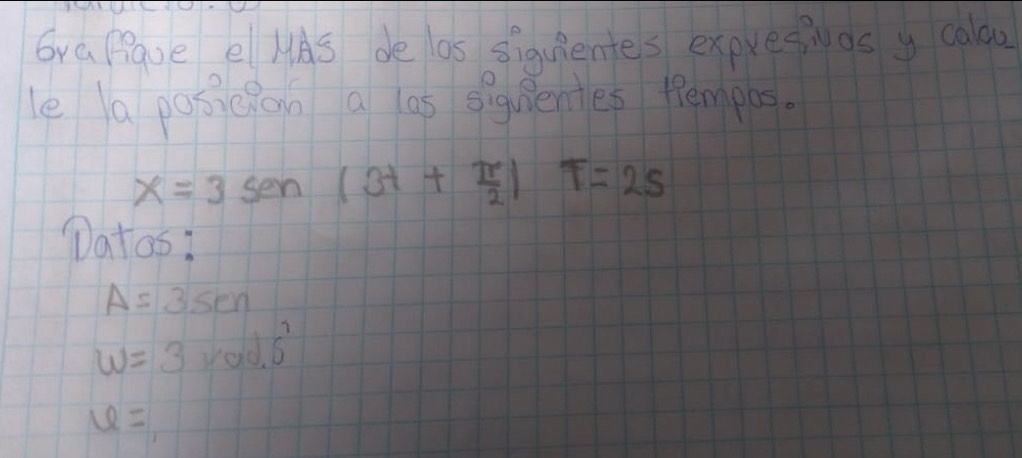 Grafique el MAS de los siguientes expresivos y calcu
le la posición a los siguientes tiempos.
X = 3 sen (3t + π/2) T = 2s
Datos:
A = 3 sen
W = 3 rad.s⁻¹
φ =